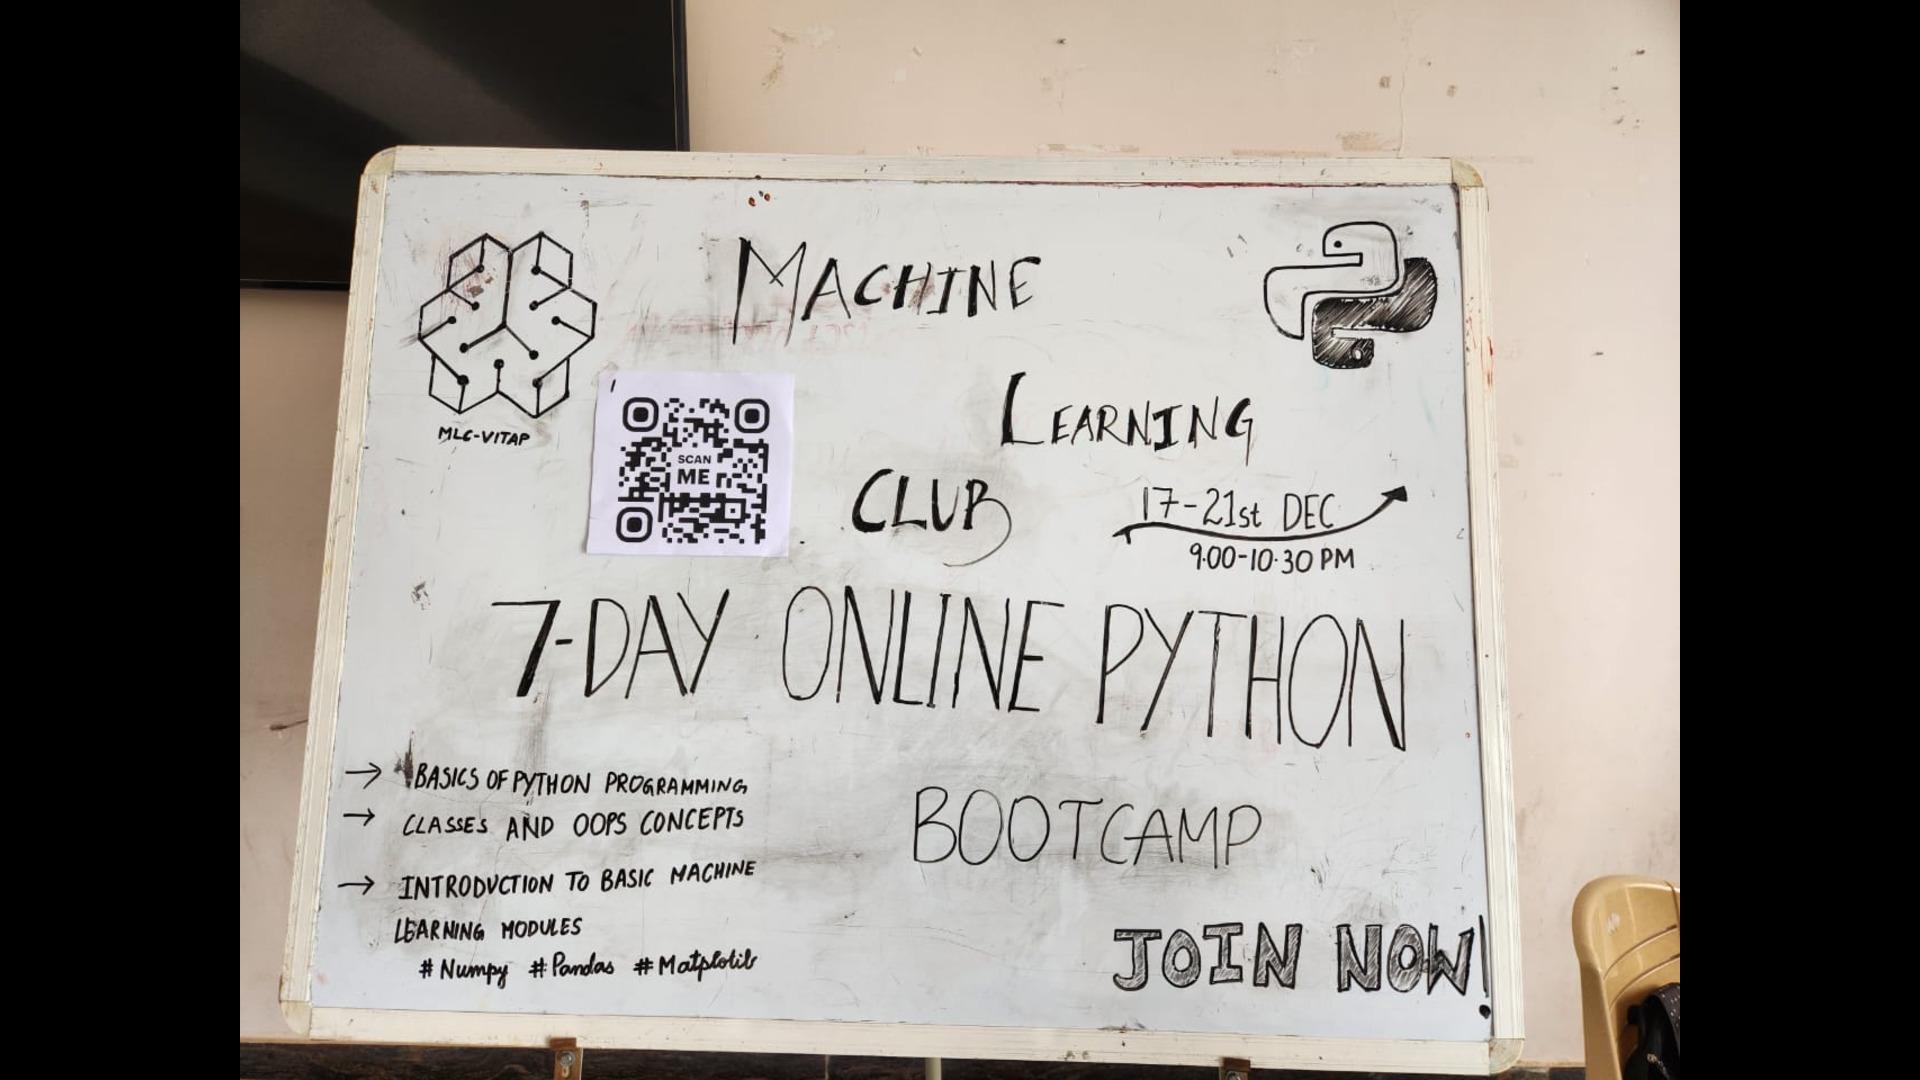 MACHINE
LEARNING
CLUB
MLC-VITAP
SCAN
ME
17-21st DEC
9.00-10.30 PM
7-DAY ONLINE PYTHON
BOOTCAMP
→ BASICS OF PYTHON PROGRAMMING
→ CLASSES AND OOPS CONCEPTS
→ INTRODUCTION TO BASIC MACHINE
LEARNING MODULES
# Numpy # Pandas # Matplotlib
JOIN NOW!